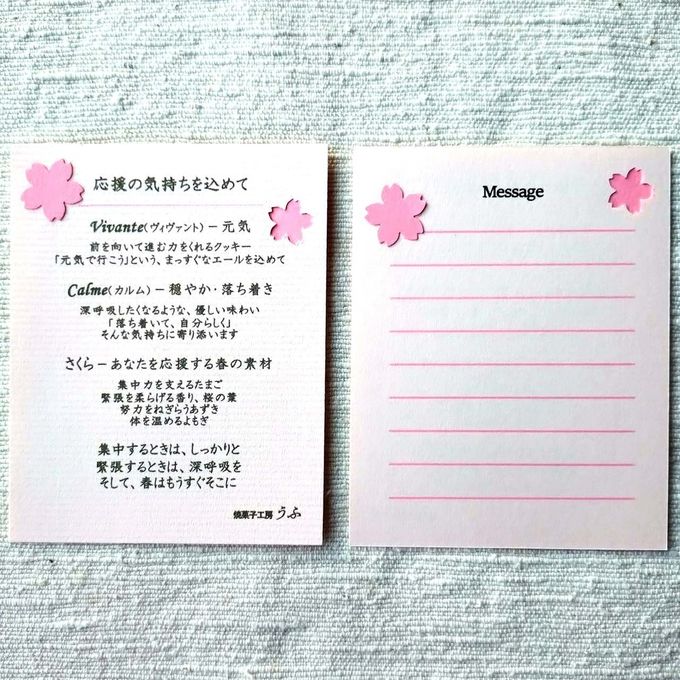 応援の気持ちを込めて
Vivante(ヴィヴァント) − 元気
前を向いて進む力をくれるクッキー
「元気で行こう」という、まっすぐなエールを込めて
Calme(カルム) − 穏やか・落ち着き
深呼吸したくなるような、優しい味わい
「落ち着いて、自分らしく」
そんな気持ちに寄り添います
さくら − あなたを応援する春の素材
集中力を支えるたまご
緊張を柔らげる香り、桜の葉
努力をねぎらうあずき
体を温めるよもぎ
集中するときは、しっかりと
緊張するときは、深呼吸を
そして、春はもうすぐそこに
焼菓子工房 うふ
Message